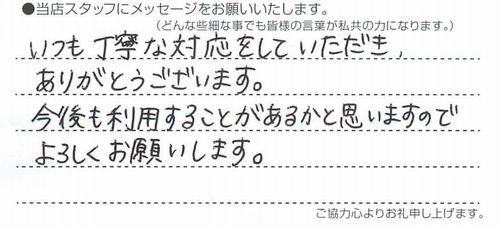 ●当店スタッフにメッセージをお願いいたします。
(どんな些細な事でも皆様の言葉が私共の力になります。)
いつも丁寧な対応をしていただき、
ありがとうございます。
今後も利用することがあるかと思いますので
よろしくお願いします。
ご協力心よりお礼申し上げます。